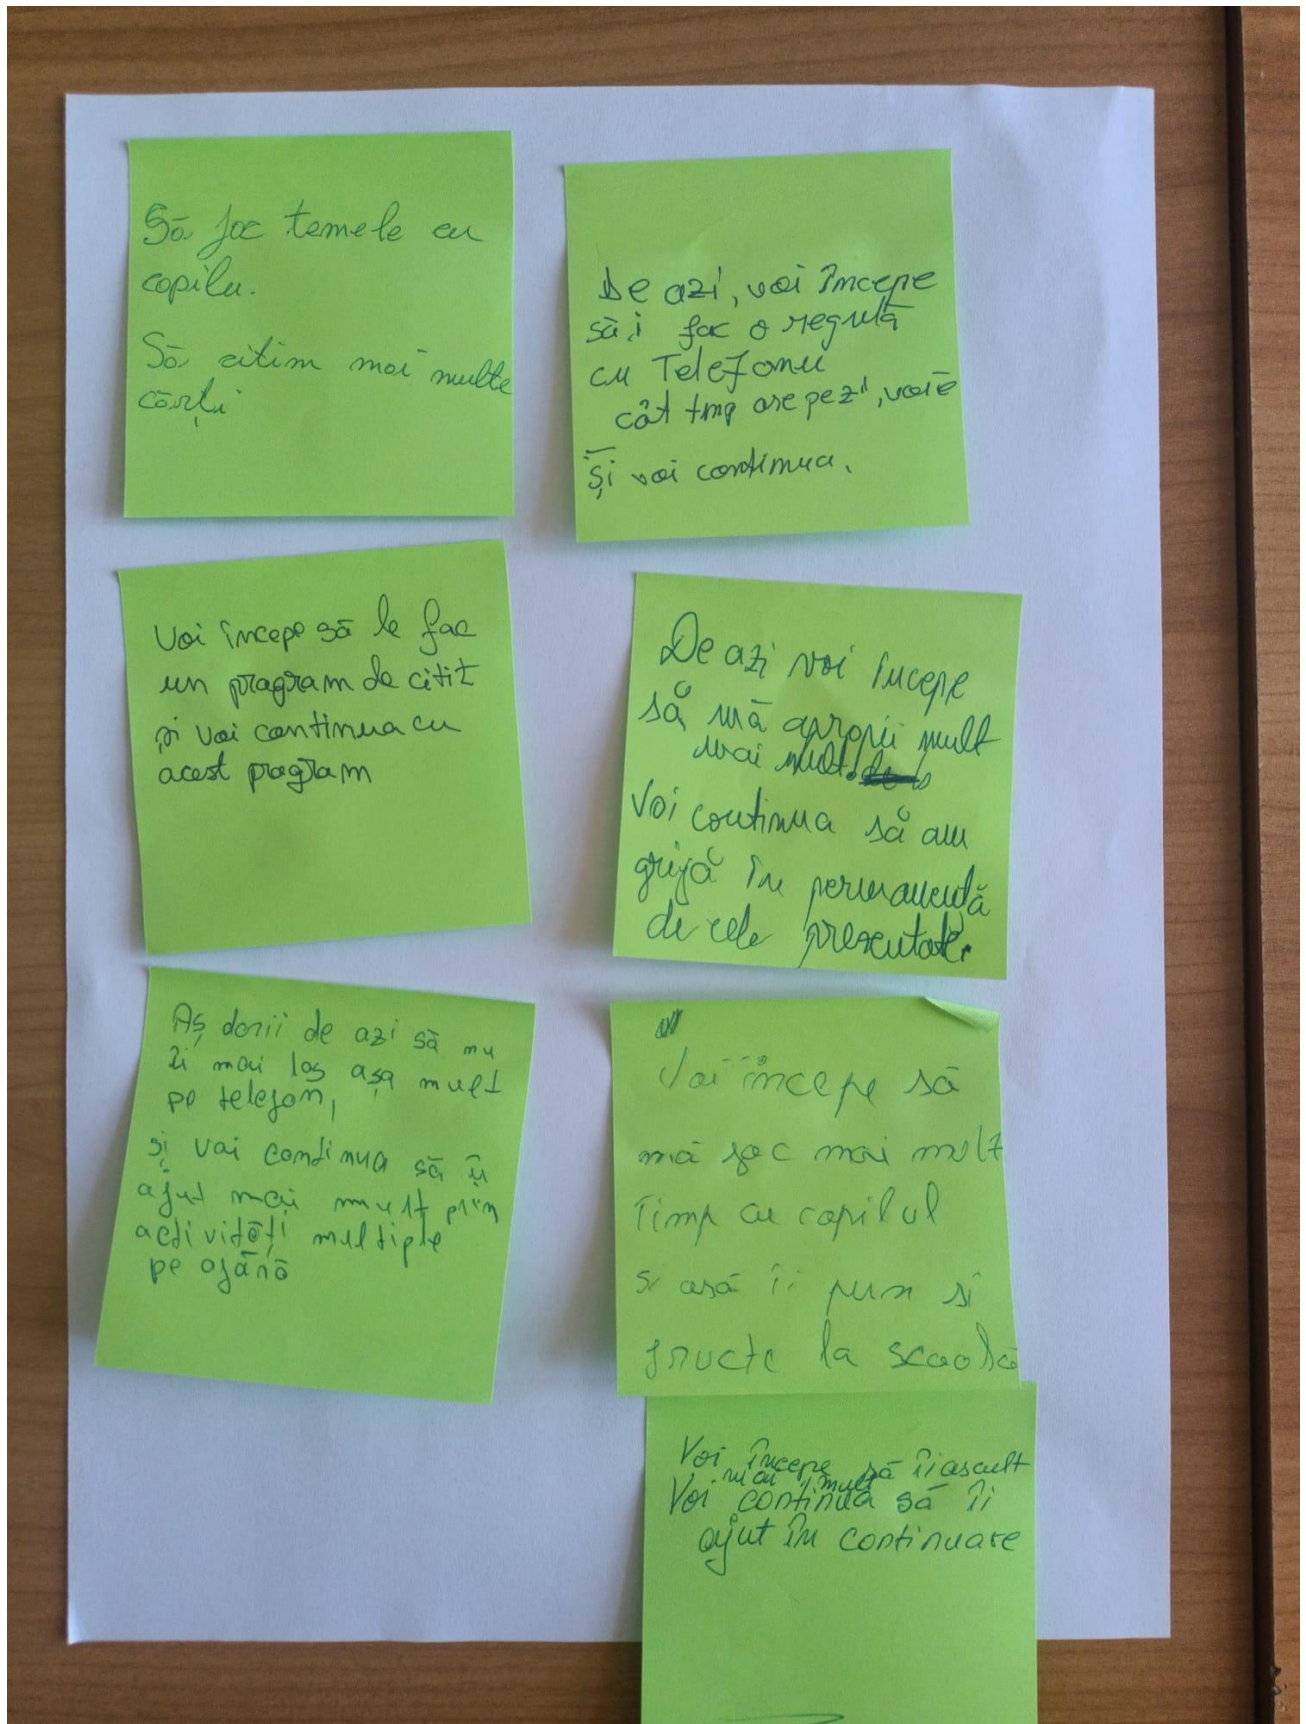 Să fac temele cu
copilu.
Să citim mai multe
cărți
De azi, voi începe
să,i fac o regulă
cu Telefonu
cât tmp are pe zi, voie
Și voi continua.
Voi începe să le fac
un program de citit
și voi continua cu
acest program
De azi voi începe
să mă apropii mult
mai mult.
Voi continua să am
grijă în permanență
de cele prezentate.
Aș dorii de azi să nu
îi mai las așa mult
pe telefon,
și voi continua să îi
ajut mai mult prin
activități multiple
pe afără
Voi începe să
mă joc mai mult
Timp cu copilul
si asă îi pun si
fructe la scoolă
Voi începe să îi ascult
mai mult
Voi continua să îi
ajut în continuare